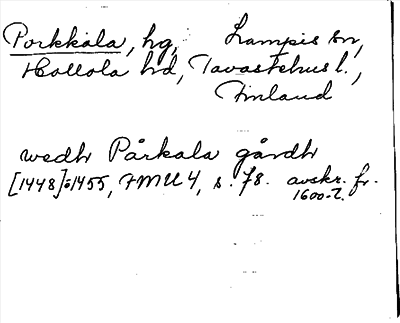 Porkkala, hg, Lampis sn,
Hollola hd, Tavastehus l.,
Finland
wedh Pårkala gårdh
[1448]:1455, FMU 4, s. 78. avskr. fr.
1600-t.